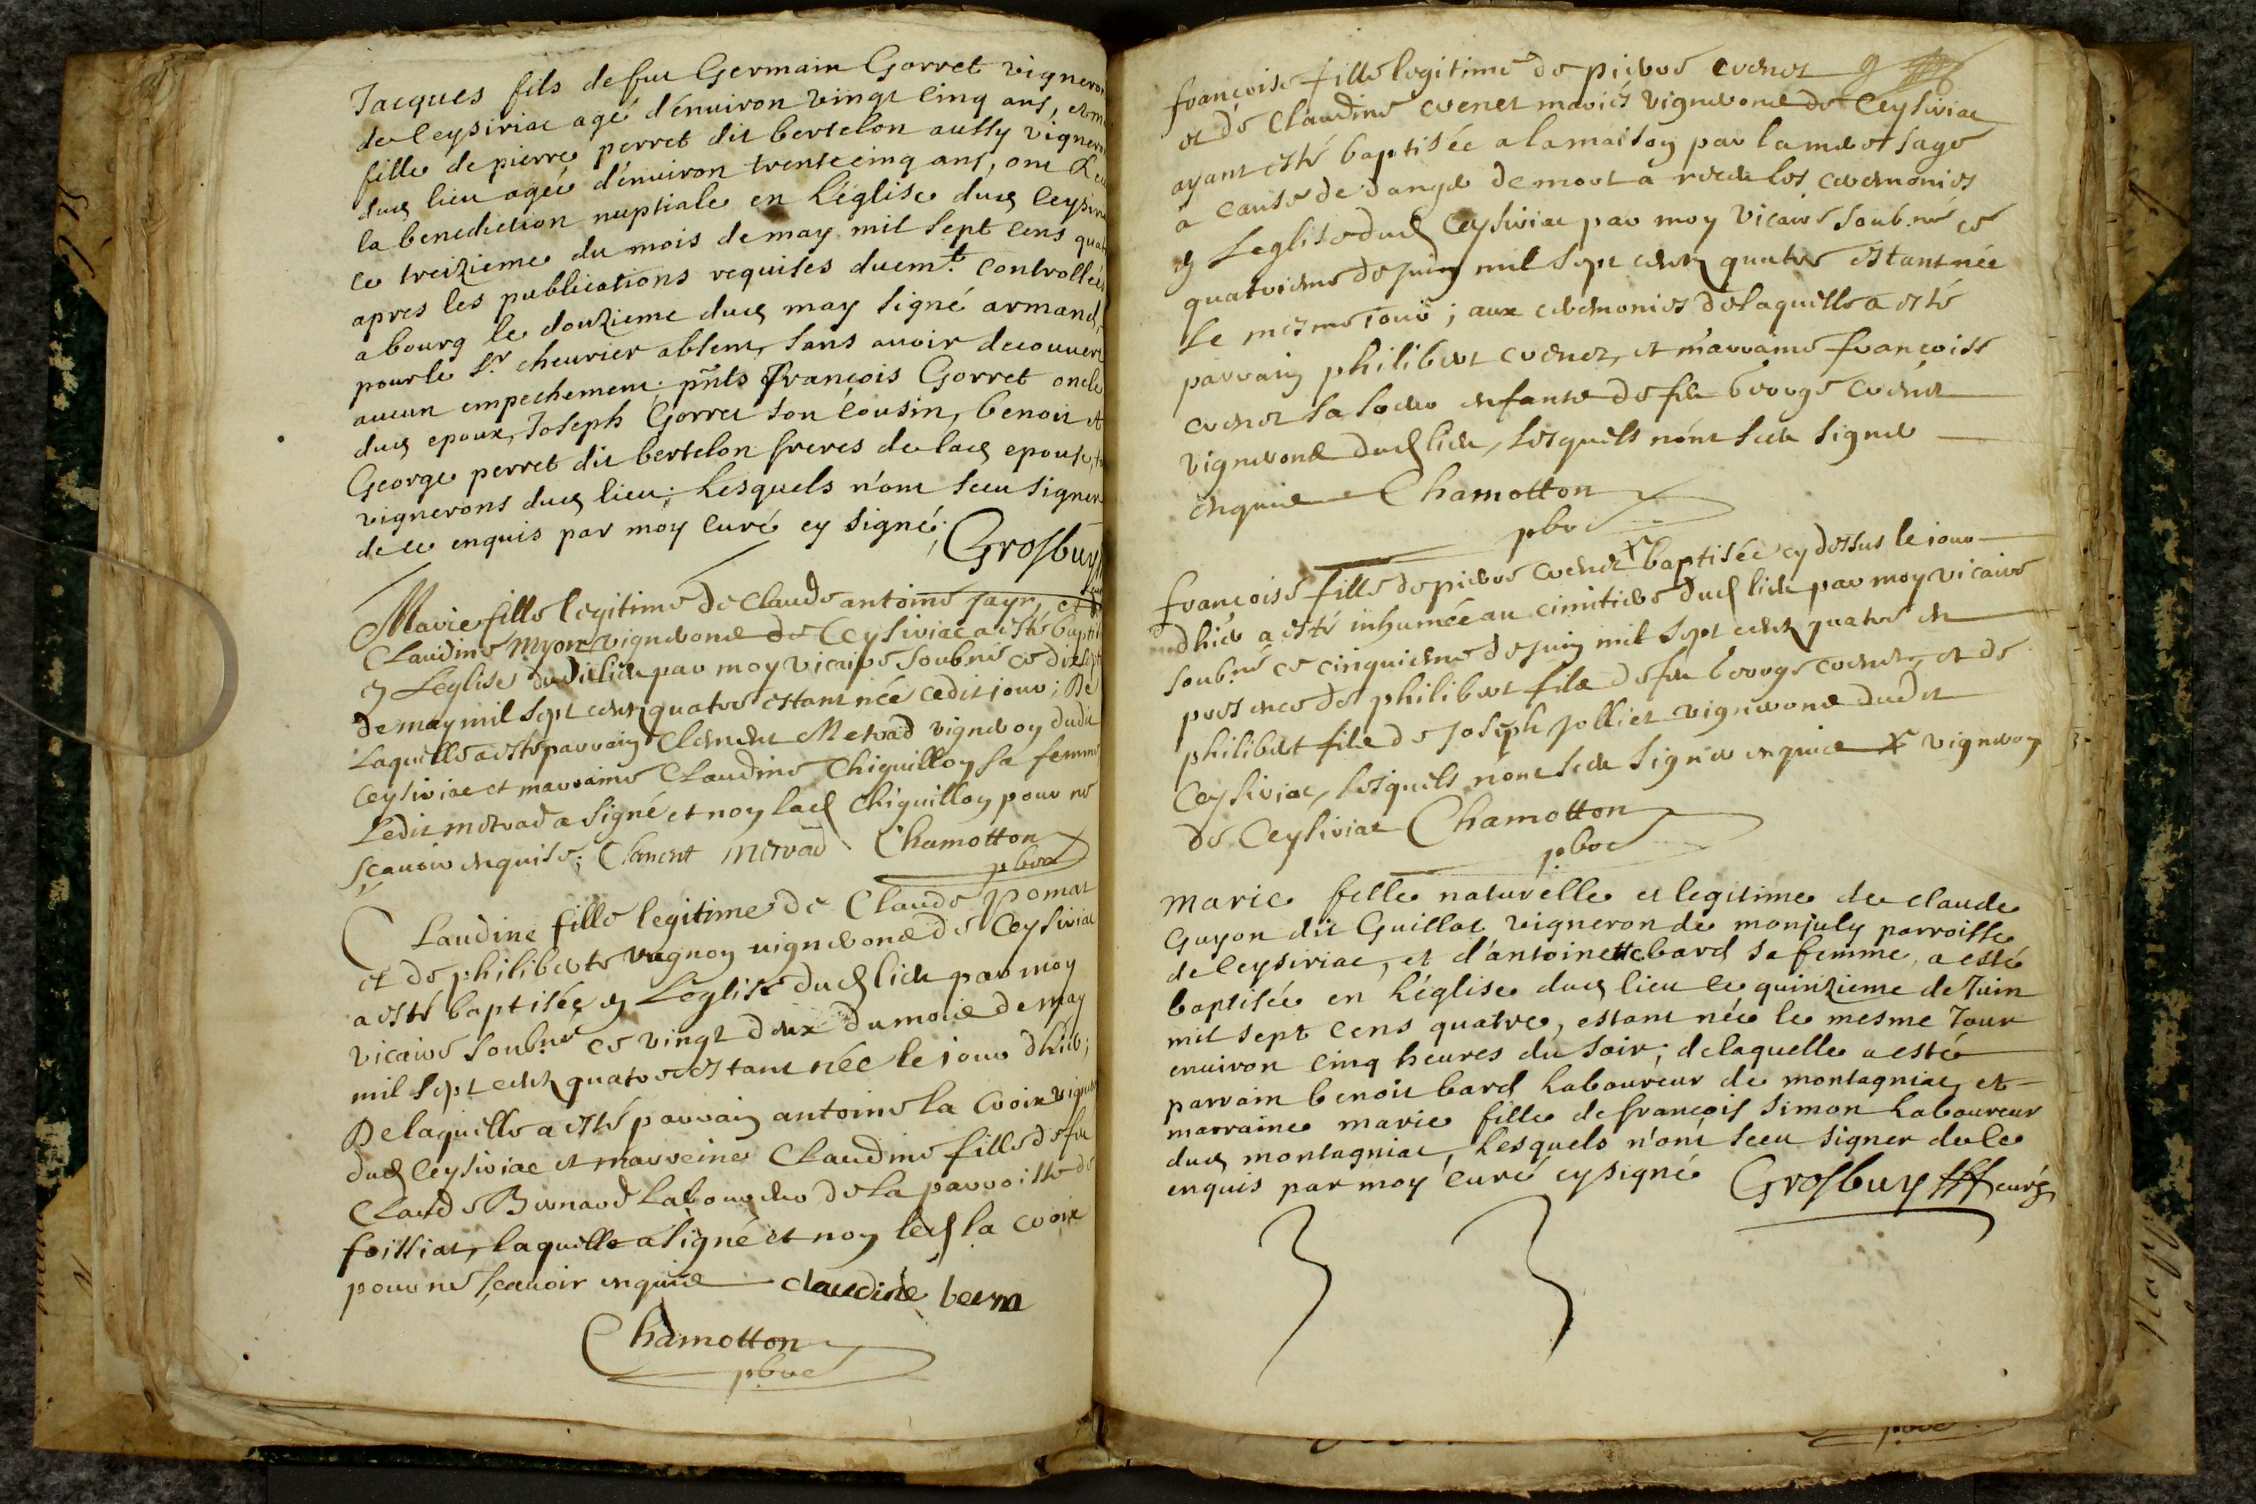 Jacques fils de feu Germain Gorret vigneron
de Ceysiriac agé d'énuiron vingt cinq ans,
fille de pierre perret dit bertelon aussy vigneron
dud lieu agée d'énuiron trente cinq ans, ont
la benediction nuptiale en L'église dud Ceysiriac
ce treizieme du mois de may mil sept cens
apres les publications requises duemt. controllées
a bourg le douzieme dud may signé armand,
pour le sr. cheurier absent, sans auoir decouuert
aucun empechement; pnts françois Gorret oncle
dud epoux, Joseph Gorret son cousin, benoit et
George perret dit bertelon freres de lad epouse,
vignerons dud lieu; Lesquels n'ont sceu signer
de ce enquis par moy curé cy signé; Grosbuy
Marie fille legitime de claude antoine Jayr, et de
Claudine Myon vignerons de Ceysiriac a esté
en Leglise dudit lieu par moy vicaire soubné ce
de may mil sept cents quatre estant née cedit jour; De
Laquelle a esté parrain Clement Metrad vigneron dudit
Ceysiriac et marraine Claudine Chiquillon sa femme
Ledit metrad a signé et non lad Chiquillon pour ne
scauoir enquise; Clement metrad Chamotton
pbre
Claudine fille legitime de Claude pomat
et de philiberte vugnon vignerons de Ceysiriac
a esté baptisée en Leglise dud lieu par moy
vicaire soubné ce vingt deux du mois de may
mil sept cents quatre estant née le jour dhier;
De laquelle a esté parrain antoine la Croix
dud Ceysiriac et marreine Claudine fille de feu
Claude Bernard Laboureur de la parroisse de
foissiat, laquelle a signé et non led la Croix
pour ne scauoir enquis claudine bern
Chamotton
pbre
françoise fille legitime de pierre cuenet
et de Claudine cuenet mariés vignerons de Ceysiriac
ayant esté baptisée a la maison par la mere sage
a cause de danger de mort a receu les ceremonies
en Leglise dud Ceysiriac par moy vicaire soubné ce
quatrieme de juin mil sept cents quatre estant née
Le mesme jour; aux ceremonies de laquelle a esté
parrain philibert cuenet, et marraine françoise
cuenet sa soeur enfants de feu George cuenet
vignerons dud lieu, Lesquels n'ont sceu signer
enquis Chamotton
pbre
françoise fille de pierre cuenet x baptisée cy dessus le jour
dhier a esté inhumée au cimitiere dud lieu par moy vicaire
soubné ce cinquieme de juin mil sept cents quatre en
presence de philibert fils de feu George cuenet, et de
philibert fils de Joseph Jolliet vignerons dudit
Ceysiriac, Lesquels n'ont sceu signer enquis x vigneron
de Ceysiriac Chamotton
pbre
marie fille naturelle et legitime de claude
Guyon dit Guillot vigneron de monjuly parroisse
de Ceysiriac, et d'antoinette bard sa femme, a esté
baptisée en L'église dud lieu ce quinzieme de Juin
mil sept cens quatre, estant née le mesme Jour
enuiron cinq heures du soir; de laquelle a esté
parrain benoit bard Laboureur de montagniac, et
marraine marie fille de françois simon Laboureur
dud montagniac, Lesquels n'ont sceu signer de ce
enquis par moy curé cy signé Grosbuy curé